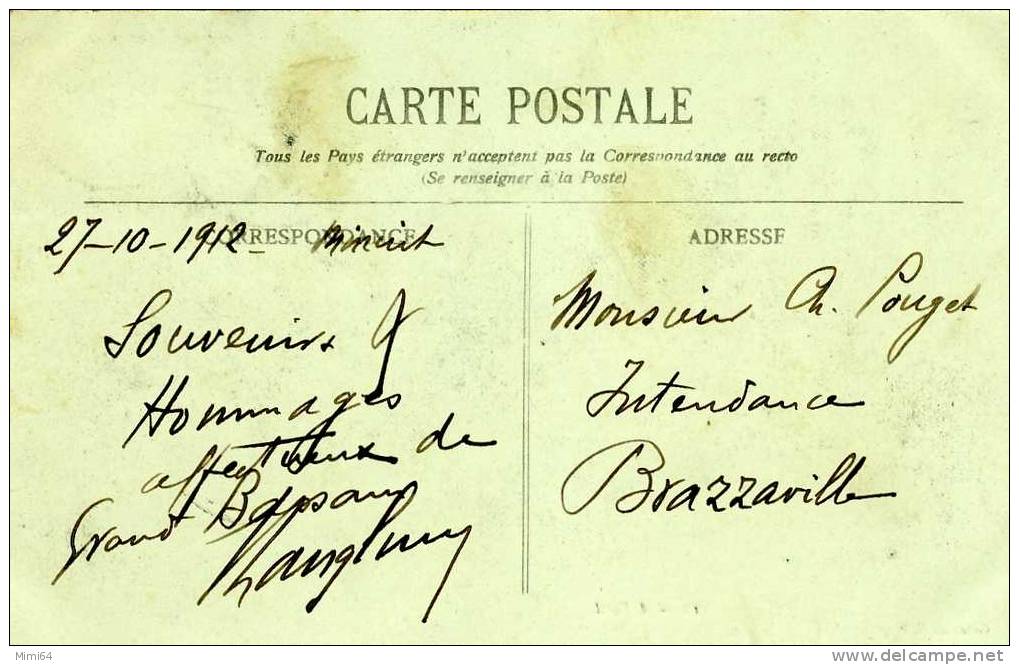 CARTE POSTALE
Tous les Pays étrangers n'acceptent pas la Correspondance au recto
(Se renseigner à la Poste)
CORRESPONDANCE
ADRESSE
27-10-1912 - Minuit
Souvenirs &
Hommages
affectueux de
Grand Bassam
Monsieur Ch. Pouget
Intendance
Brazzaville
Mimi64
www.delcampe.net